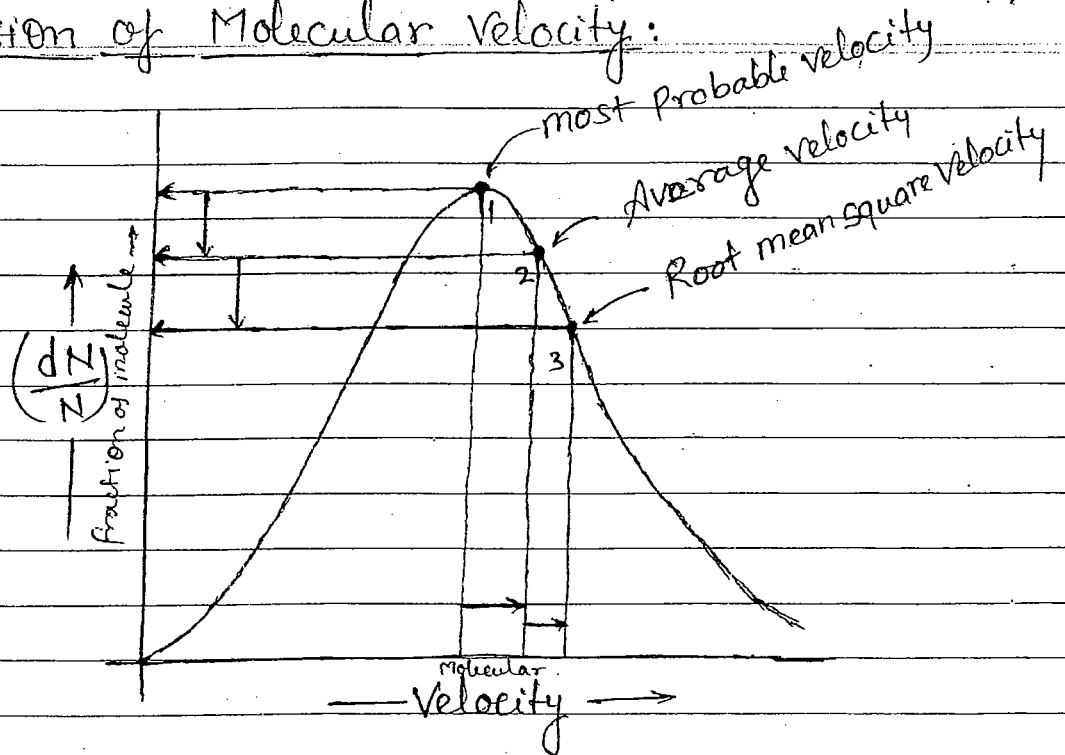 tion of Molecular Velocity:
most Probable velocity
Average velocity
Root mean square velocity
1
2
3
(dN/N)
fraction of molecule →
Molecular
Velocity